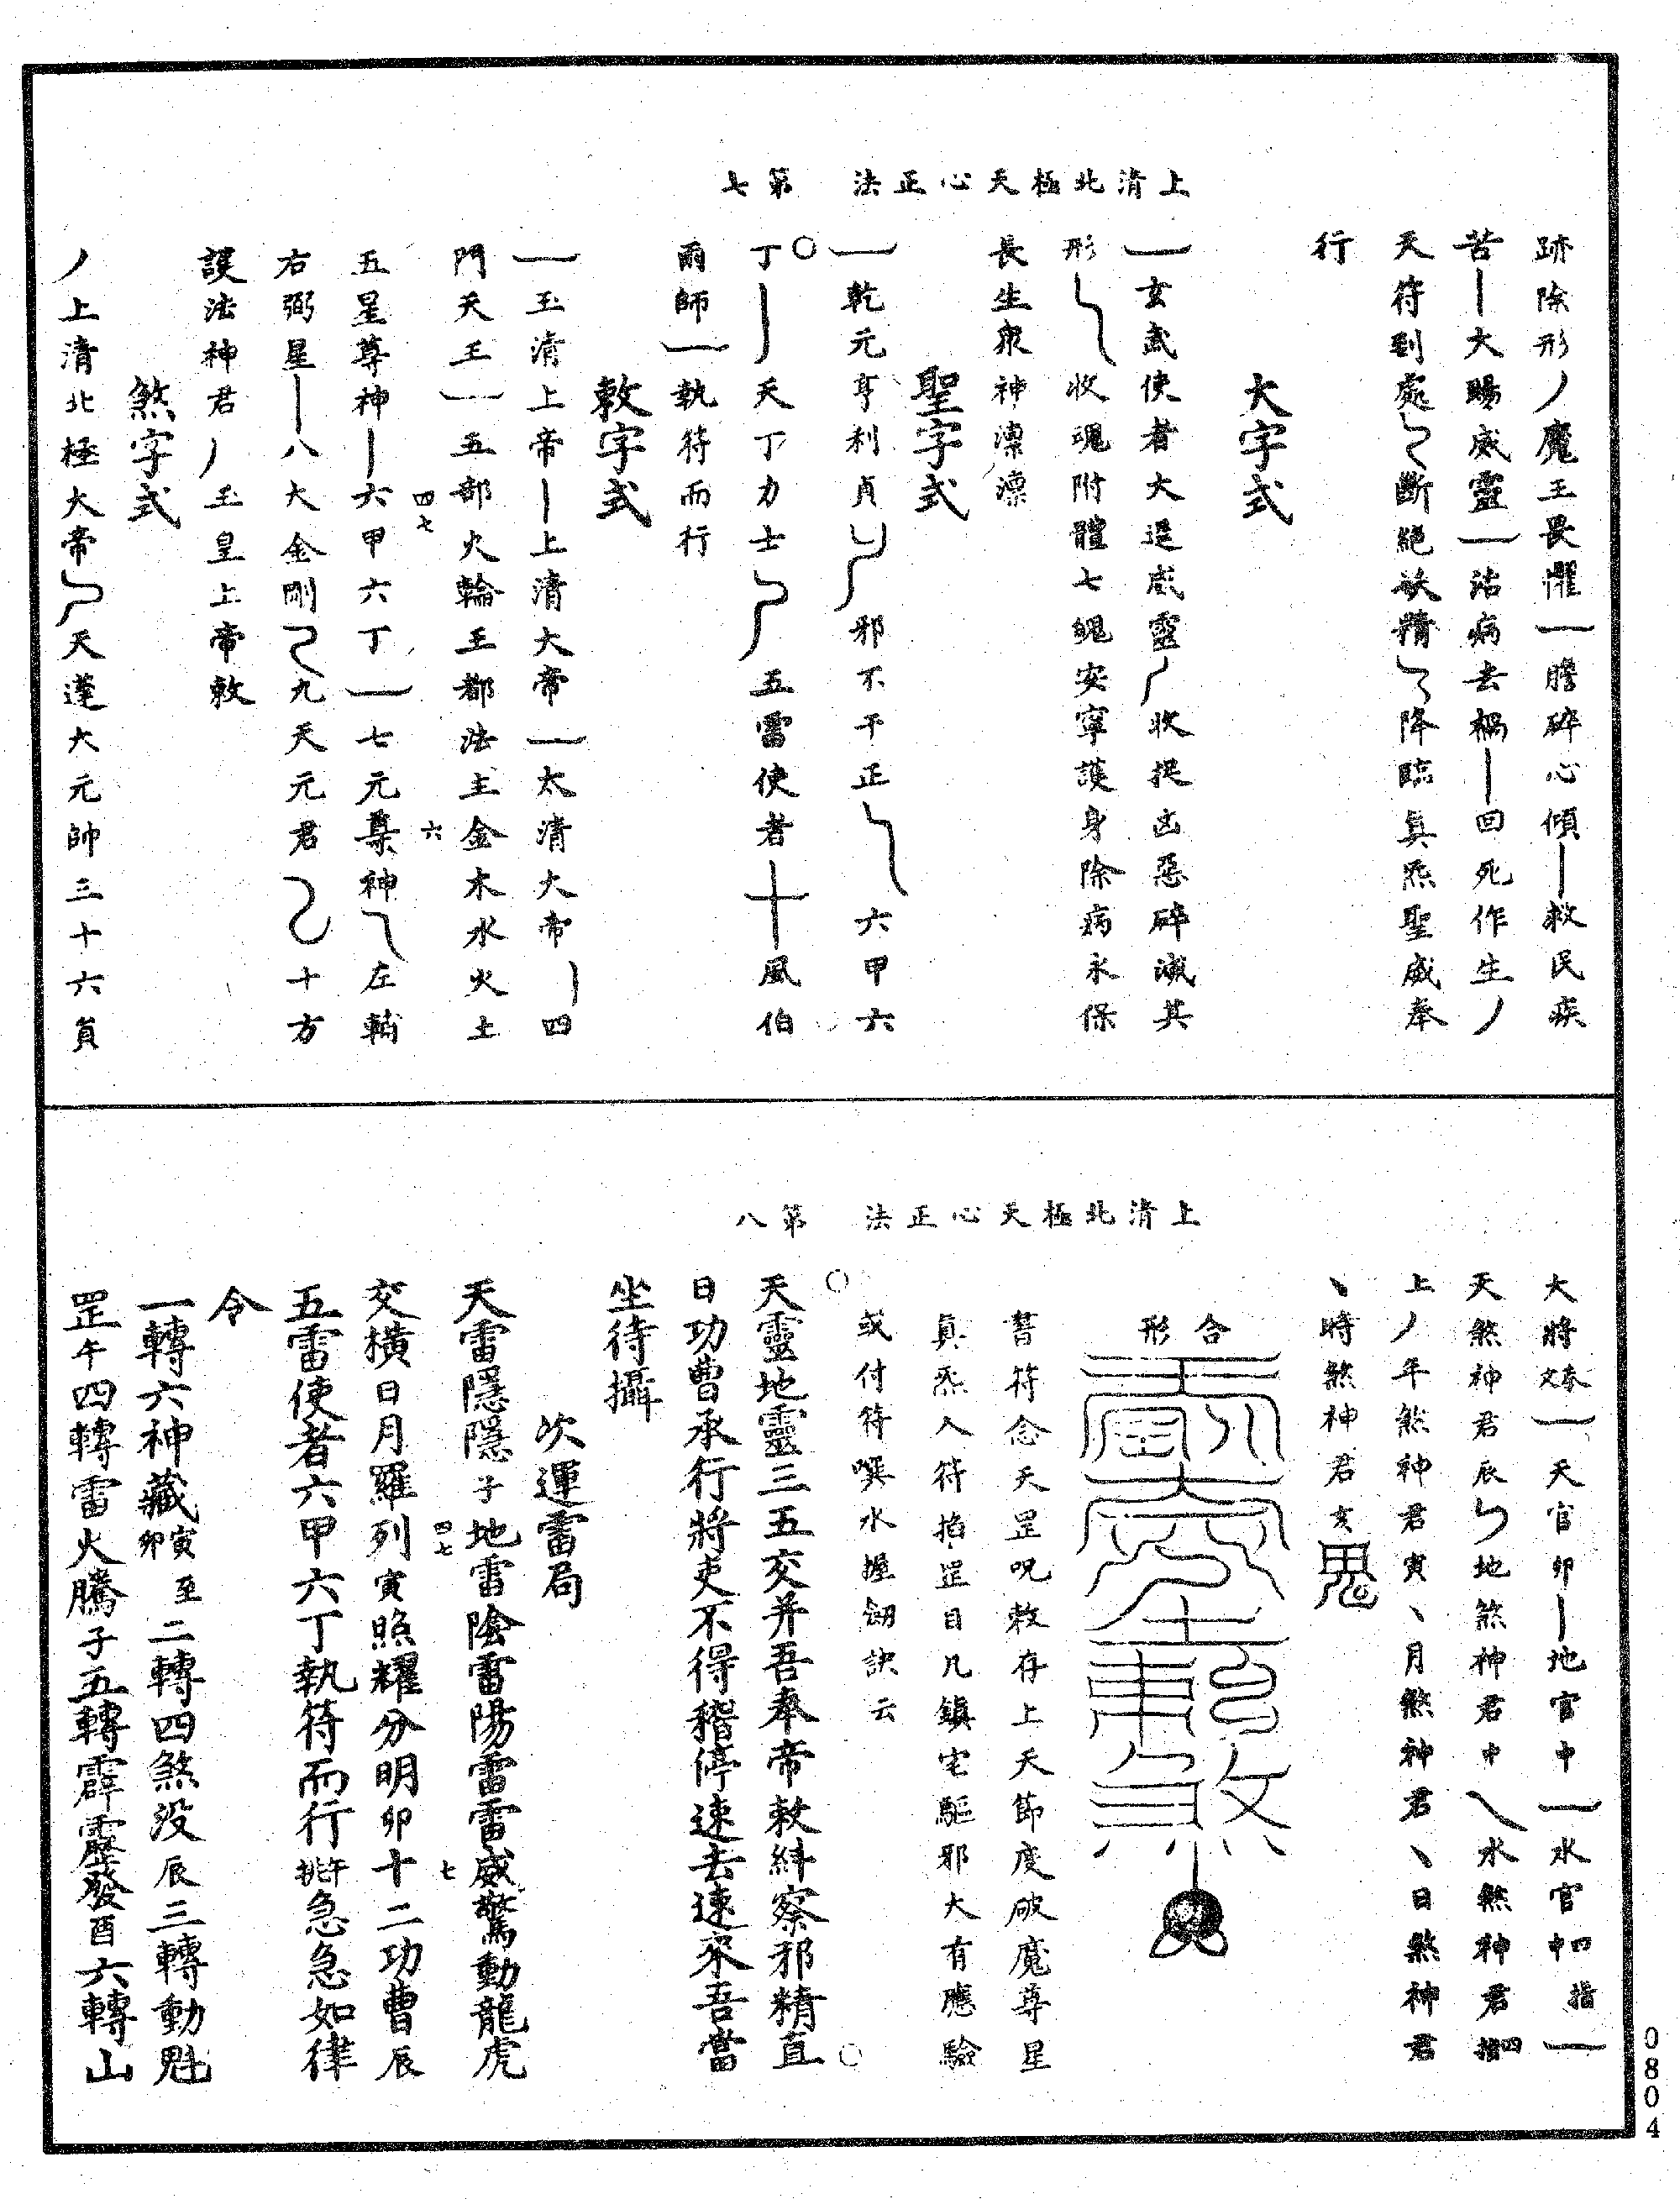 上清北極天心正法 第七
跡除形丿魔王畏懼一膽碎心傾丨救民疾
苦丨大賜威靈一治病去禍丨回死作生丿
天符到處斷絕妖精降臨真炁聖威奉
行
大字式
一玄武使者大逞威靈收捉凶惡碎滅其
形收魂附體七魄安寧護身除病永保
長生眾神凜凜
聖字式
一乾元亨利貞邪不干正六甲六
丁丨天丁力士五雷使者十風伯
雨師一執符而行
敕字式
一玉清上帝丨上清大帝一太清大帝丨四
門天王一五部火輪王都法主金木水火土
四七 六
五星尊神丨六甲六丁一七元尊神左輔
右弼星丨八大金剛九天元君十方
護法神君丿玉皇上帝敕
煞字式
丿上清北極大帝天蓬大元帥三十六員
上清北極天心正法 第八
大將一天官卯丨地官中一水官四指中一
天煞神君辰地煞神君中水煞神君四指
上丿年煞神君寅丶月煞神君丶日煞神君
丶時煞神君亥鬼
合形
書符念天罡呪敕存上天節度破魔尊星
真炁入符掐罡目凡鎮宅驅邪大有應驗
或付符噀水握劒訣云
天靈地靈三五交并吾奉帝敕糾察邪精直
日功曹承行將吏不得稽停速去速來吾當
坐待攝
次運雷局
天雷隱隱子地雷陰雷陽雷雷威驚動龍虎
四七 七
交橫日月羅列寅照耀分明卯十二功曹辰
五雷使者六甲六丁執符而行午挑急急如律
令
一轉六神藏寅至卯二轉四煞沒辰三轉動魁
罡午四轉雷火騰子五轉霹靂發酉六轉山
0804